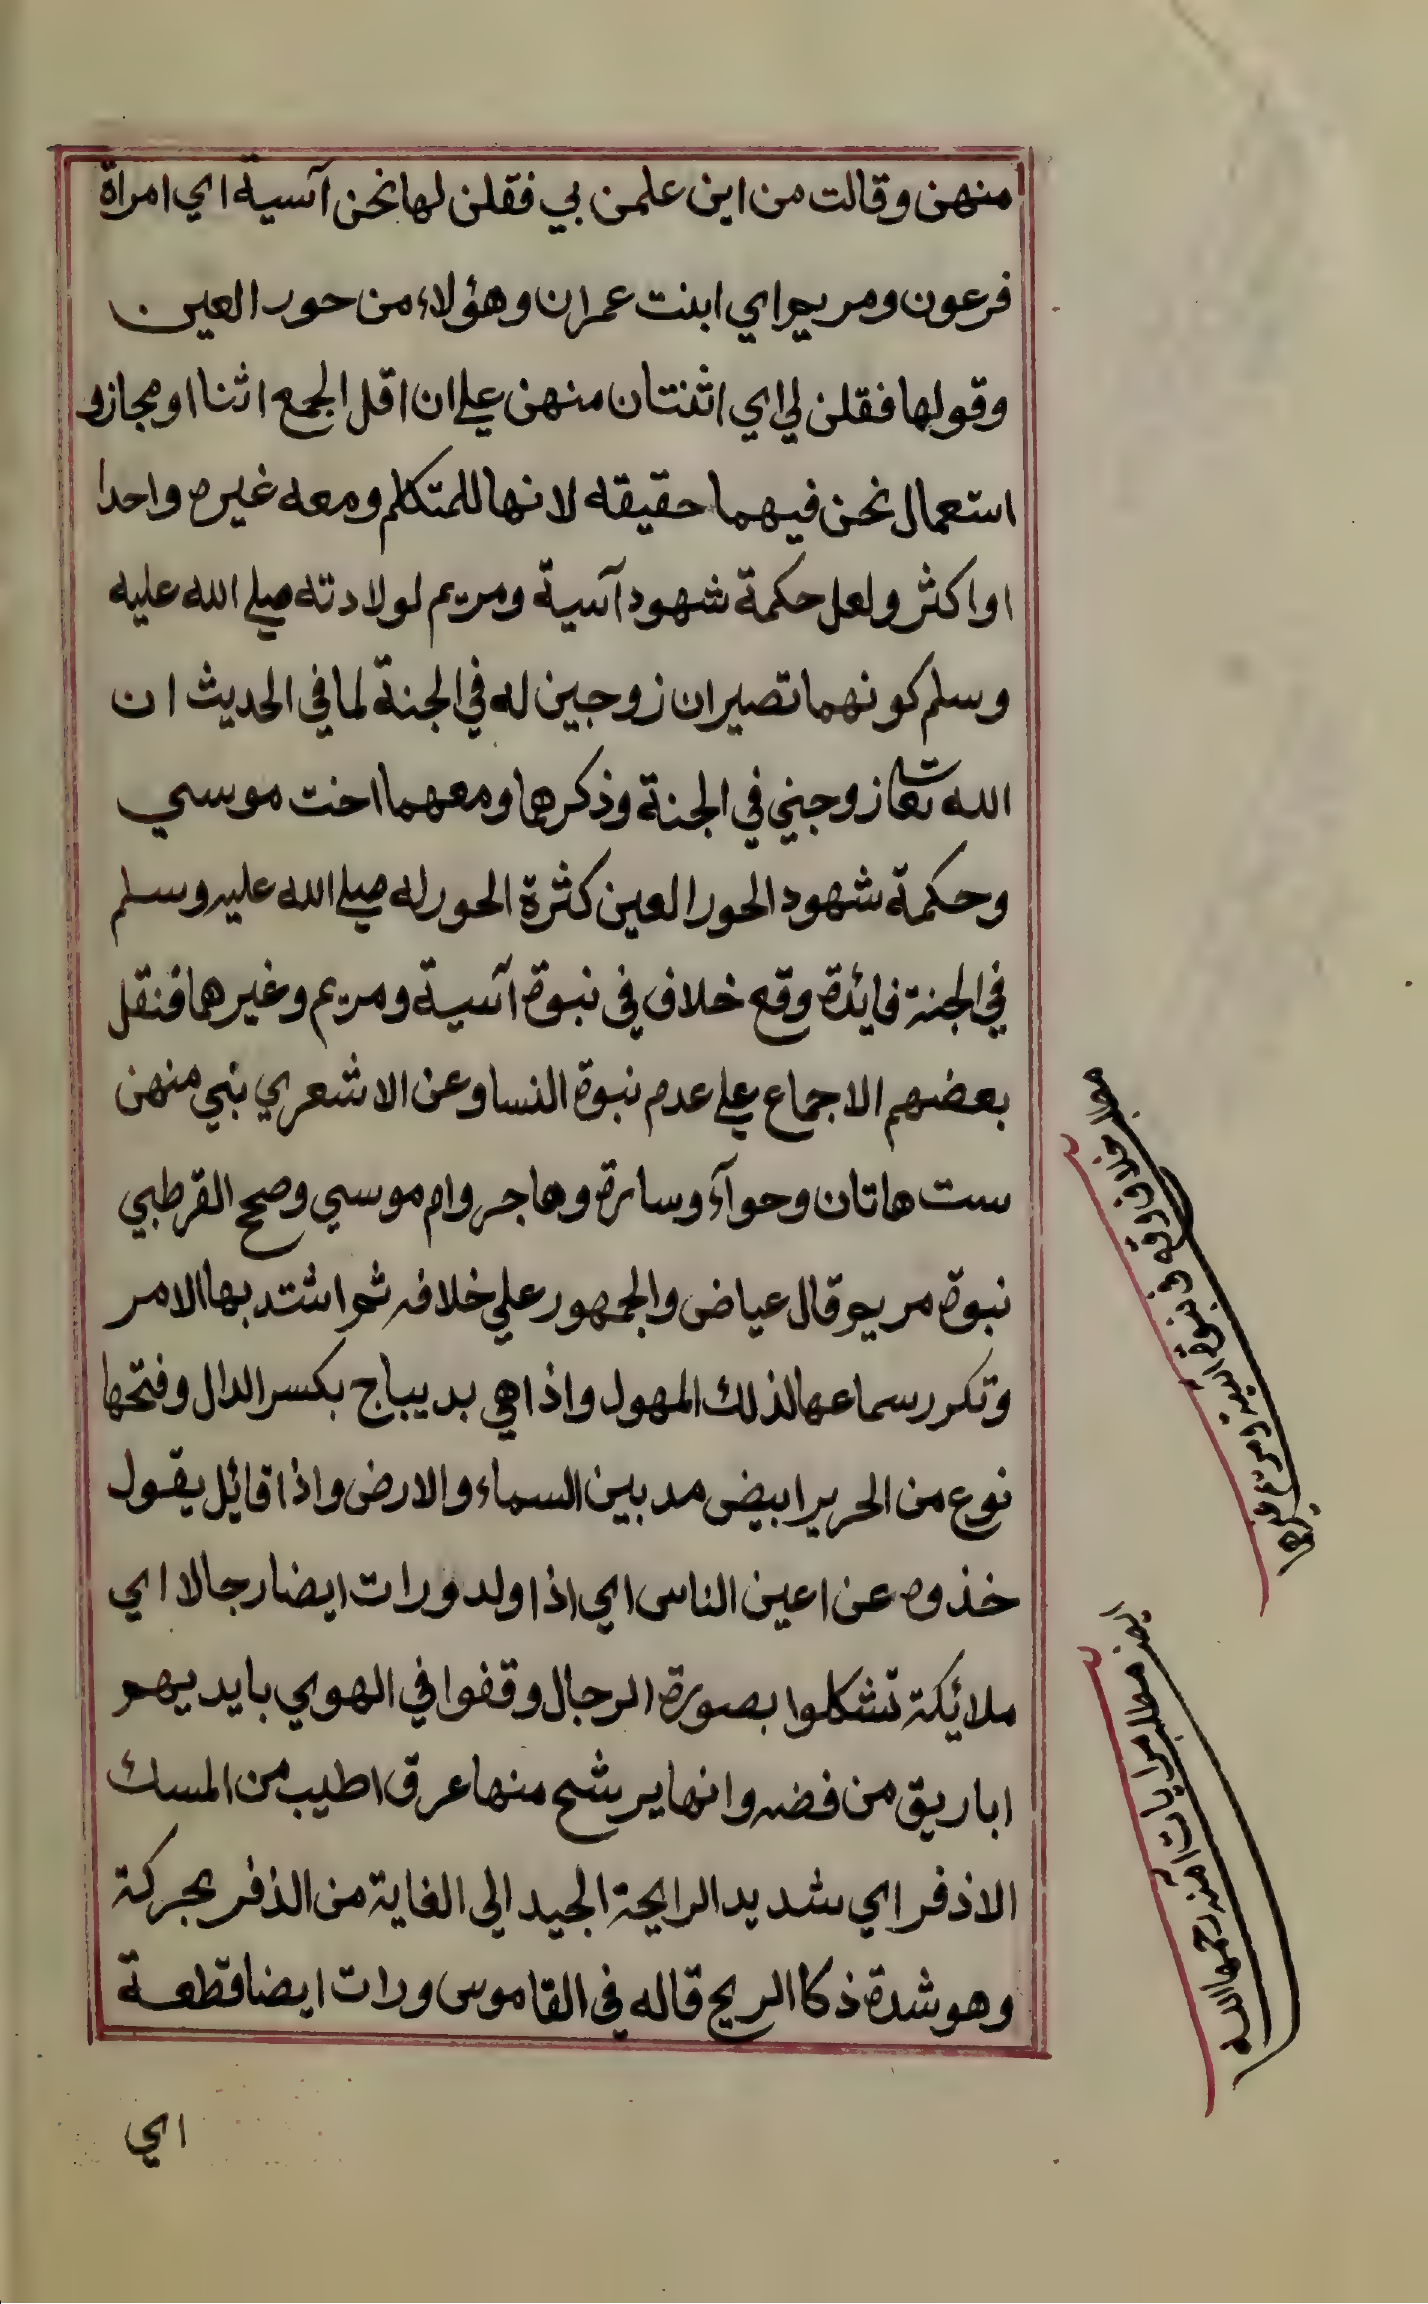 منهن وقالت من اين علمن بي فقلن لها نحن آسية اي امراة
فرعون ومريم اي ابنت عمران وهؤلاء من حور العين
وقولها فقلن لي اي اثنتان منهن علي ان اقل الجمع اثنا او مجاز و
استعمال نحن فيهما حقيقه لانها للمتكلم ومعه غيره واحدا
او اكثر ولعل حكمة شهود آسية ومريم لولادته صلي الله عليه
وسلم كونهما تصيران زوجين له في الجنة لما في الحديث ان
الله تعا زوجني في الجنة وذكرهما ومعهما اخت موسي
وحكمة شهود الحور العين كثرة الحور له صلي الله عليه وسلم
في الجنة فائدة وقع خلاف في نبوة آسية ومريم وغيرهما فنقل
بعضهم الاجماع علي عدم نبوة النسا وعن الاشعري نبي منهن
ست هاتان وحوآء وسارة وهاجر وام موسي وصحح القرطبي
نبوة مريم قال عياض والجمهور علي خلافه ثم اشتد بها الامر
وتكرر سماعها لذلك المهول واذا هي بديباج بكسر الدال وفتحها
نوع من الحرير ابيض مد بين السماء والارض واذا قائل يقول
خذوه عن اعين الناس اي اذا ولد ورات ايضا رجالا اي
ملائكة تشكلوا بصورة الرجال وقفوا في الهوي بايديهم
اباريق من فضه وانها يرشح منها عرق اطيب من المسك
الاذفر اي شديد الرايحة الجيد الي الغاية من الذفر بحركة
وهو شدة ذكا الريح قاله في القاموس ورات ايضا قطعة
اي
مطلب خلاف وقع في نبوة آسية ومريم وغيرهما
مطلب مرايات امنه رحمها الله